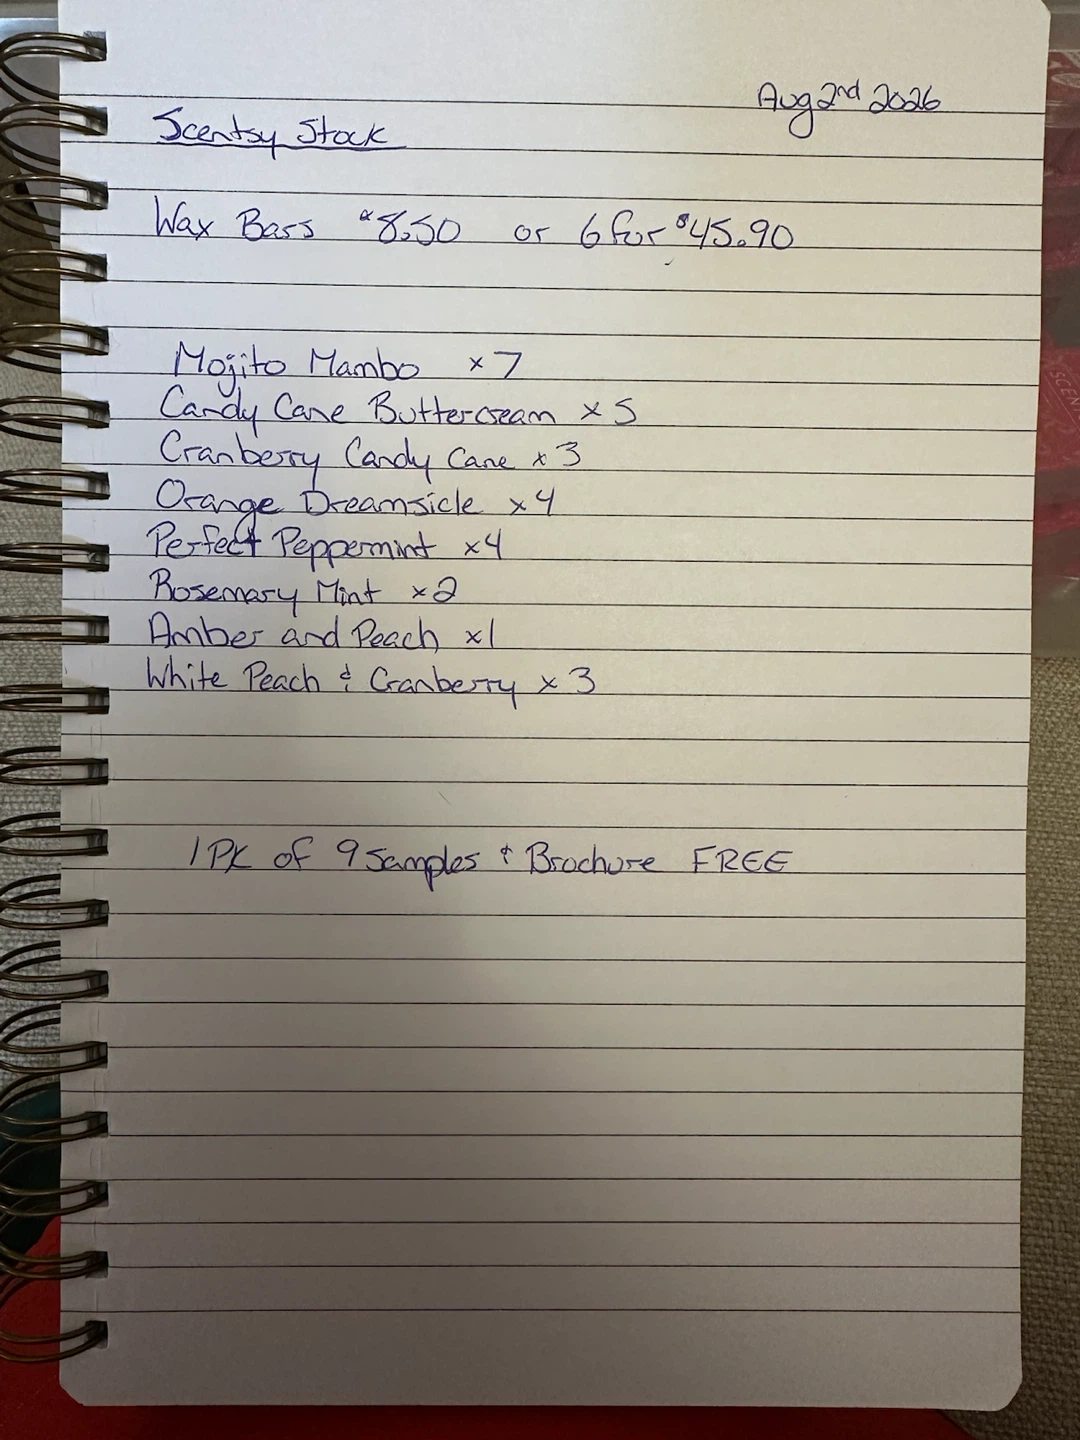 Aug 2nd 2026
Scentsy Stock
Wax Bars $8.50 or 6 for $45.90
Mojito Mambo x 7
Candy Cane Buttercream x 5
Cranberry Candy Cane x 3
Orange Dreamsicle x 4
Perfect Peppermint x4
Rosemary Mint x2
Amber and Peach x1
White Peach & Cranberry x 3
1 PK of 9 Samples & Brochure FREE